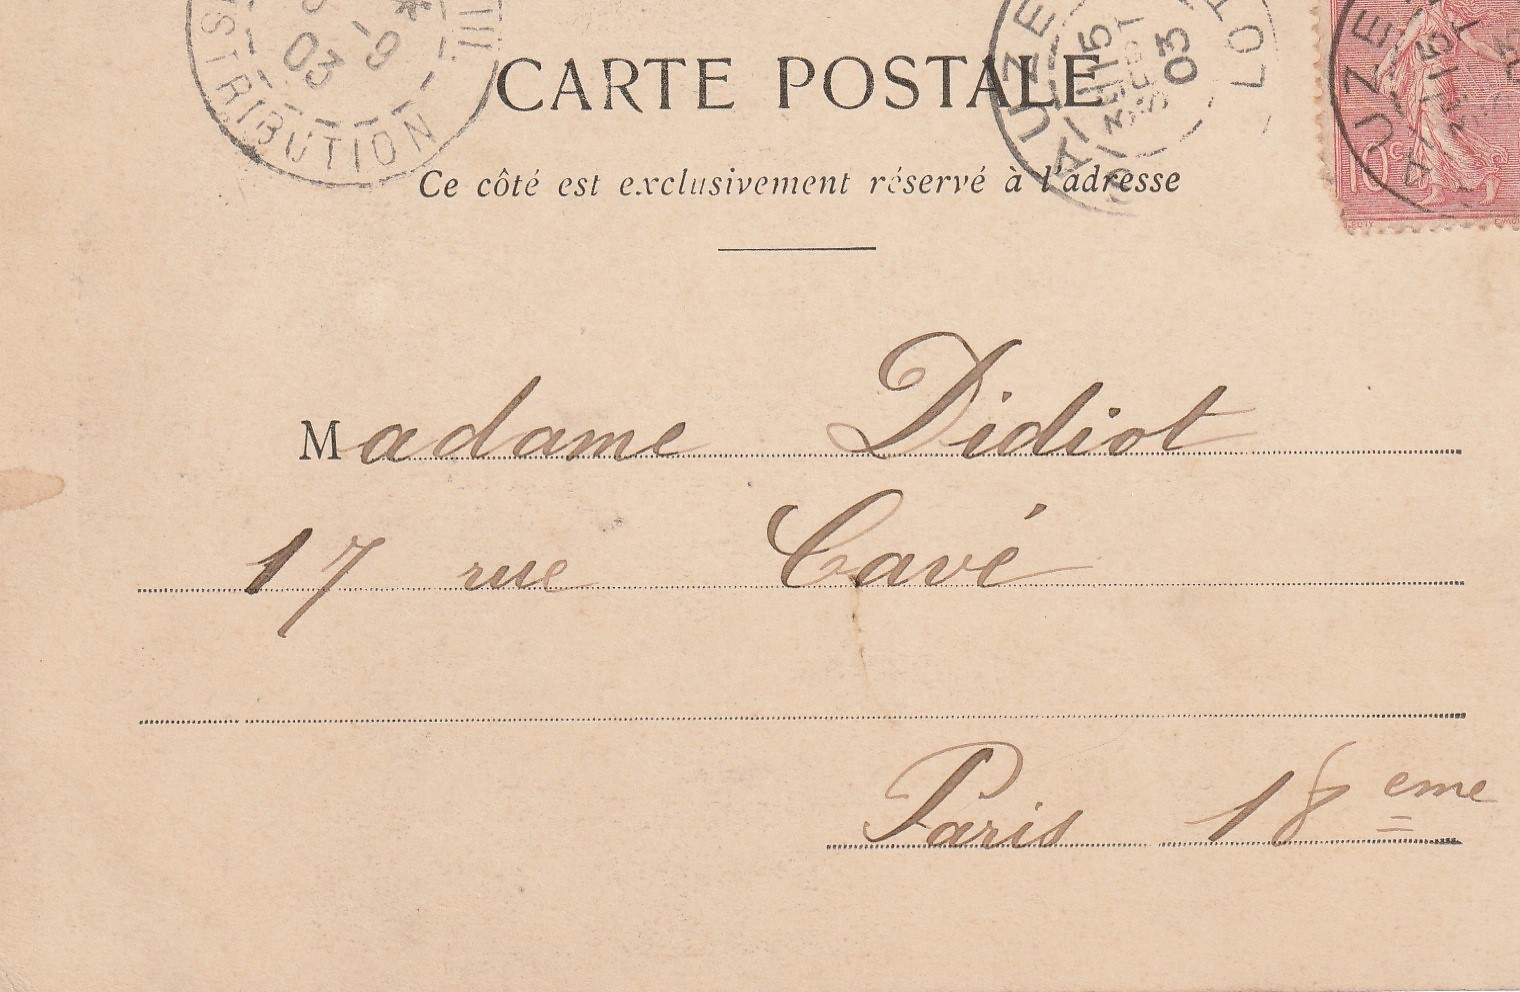 DISTRIBUTION
-9
03
CARTE POSTALE
AUZE
15
SEPT
03
LOT
AUZE
15
10c
Ce côté est exclusivement réservé à l'adresse
Madame Didiot
17 rue Cavé
Paris 18eme